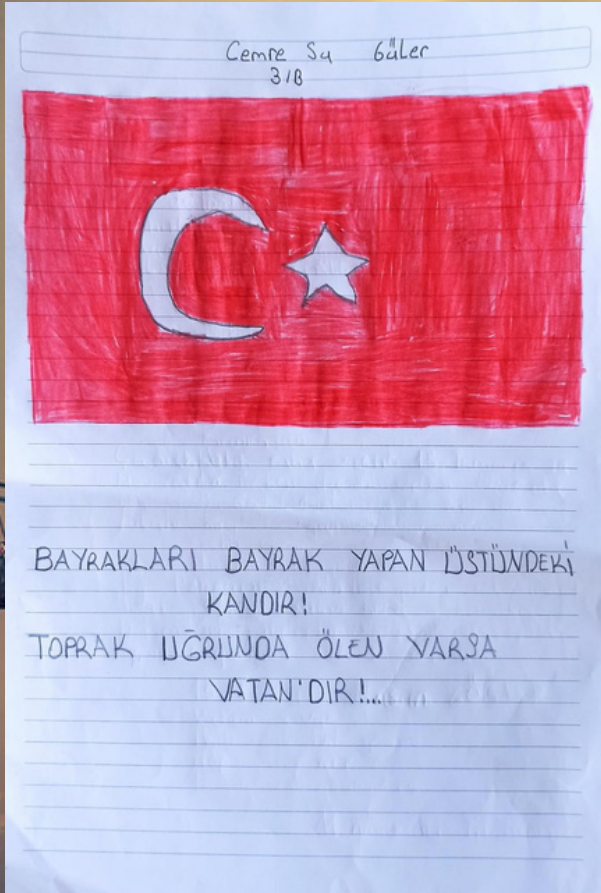 Cemre Su Güler
3/B
BAYRAKLARI BAYRAK YAPAN ÜSTÜNDEKİ
KANDIR!
TOPRAK UĞRUNDA ÖLEN VARSA
VATAN'DIR!...